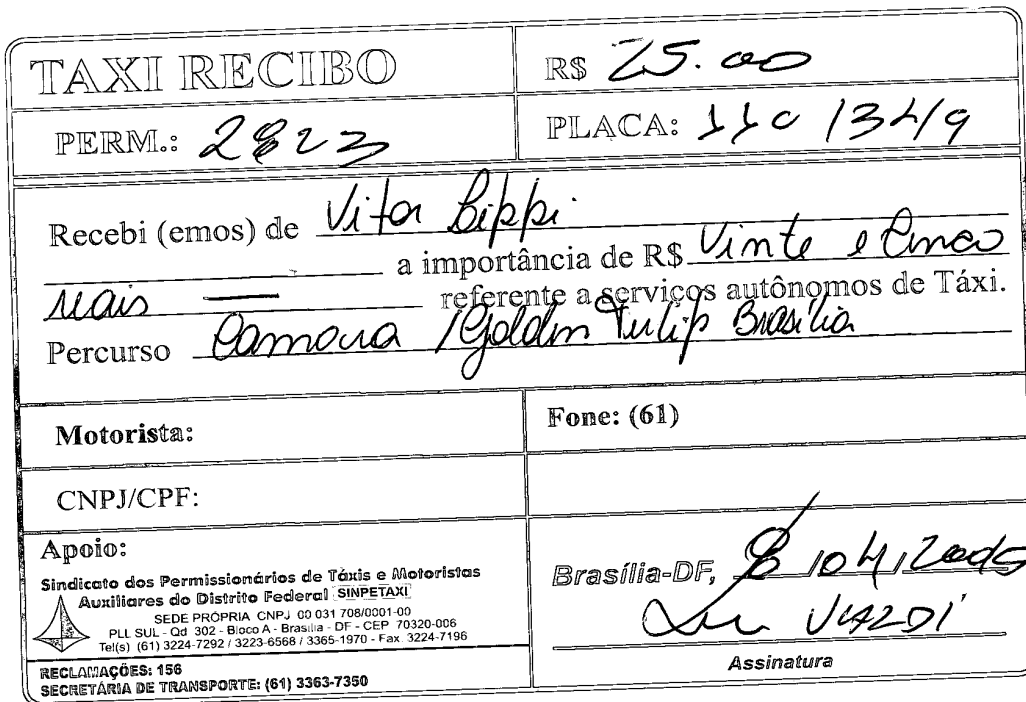 TAXI RECIBO
R$ 25.00
PERM.: 2823
PLACA:
Recebi (emos) de Vitor Lippi.
a importância de R$ Vinte e Cinco
reais — referente a serviços autônomos de Táxi.
Percurso Camara / Golden Tulip Brasília
Motorista:
Fone: (61)
CNPJ/CPF:
Apoio:
Sindicato dos Permissionários de Táxis e Motoristas
Auxiliares do Distrito Federal SINPETAXI
SEDE PRÓPRIA CNPJ 00 031 708/0001-00
PLL SUL - Qd 302 - Bloco A - Brasília - DF - CEP 70320-006
Tel(s) (61) 3224-7292 / 3223-6568 / 3365-1970 - Fax. 3224-7196
RECLAMAÇÕES: 156
SECRETÁRIA DE TRANSPORTE: (61) 3363-7350
Brasília-DF, / 04 /
Assinatura